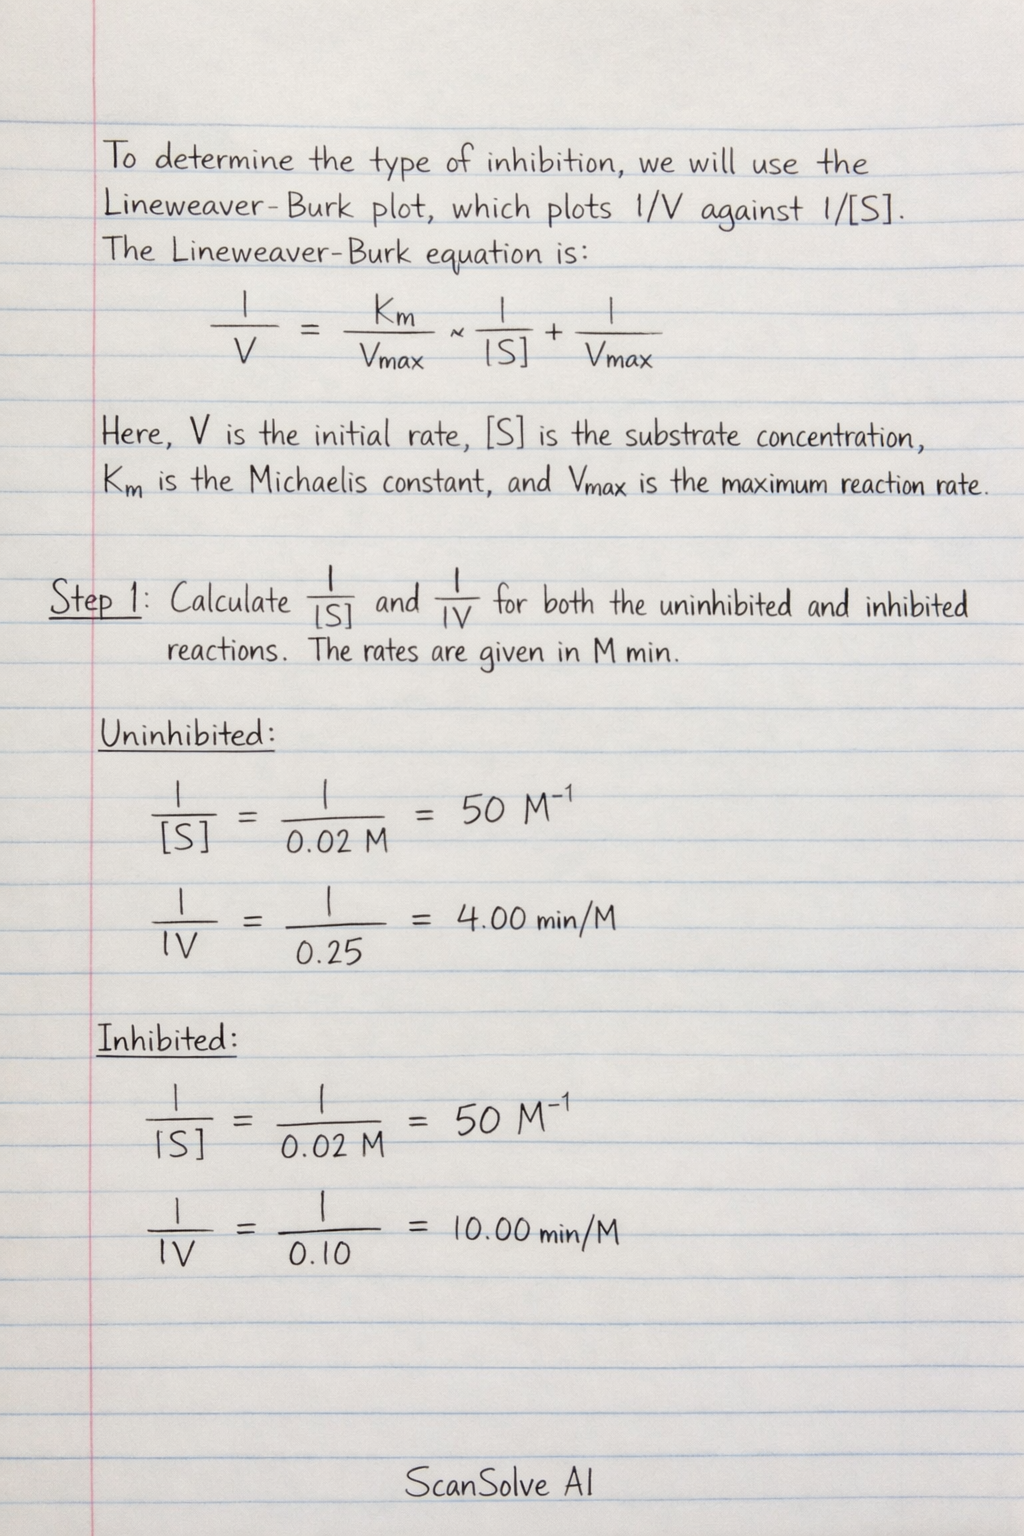 To determine the type of inhibition, we will use the
Lineweaver-Burk plot, which plots 1/V against 1/[S].
The Lineweaver-Burk equation is:
1/V = Km/Vmax ~ 1/[S] + 1/Vmax
Here, V is the initial rate, [S] is the substrate concentration,
Km is the Michaelis constant, and Vmax is the maximum reaction rate.
Step 1: Calculate 1/[S] and 1/IV for both the uninhibited and inhibited
reactions. The rates are given in M min.
Uninhibited:
1/[S] = 1/0.02 M = 50 M⁻¹
1/IV = 1/0.25 = 4.00 min/M
Inhibited:
1/[S] = 1/0.02 M = 50 M⁻¹
1/IV = 1/0.10 = 10.00 min/M
ScanSolve AI